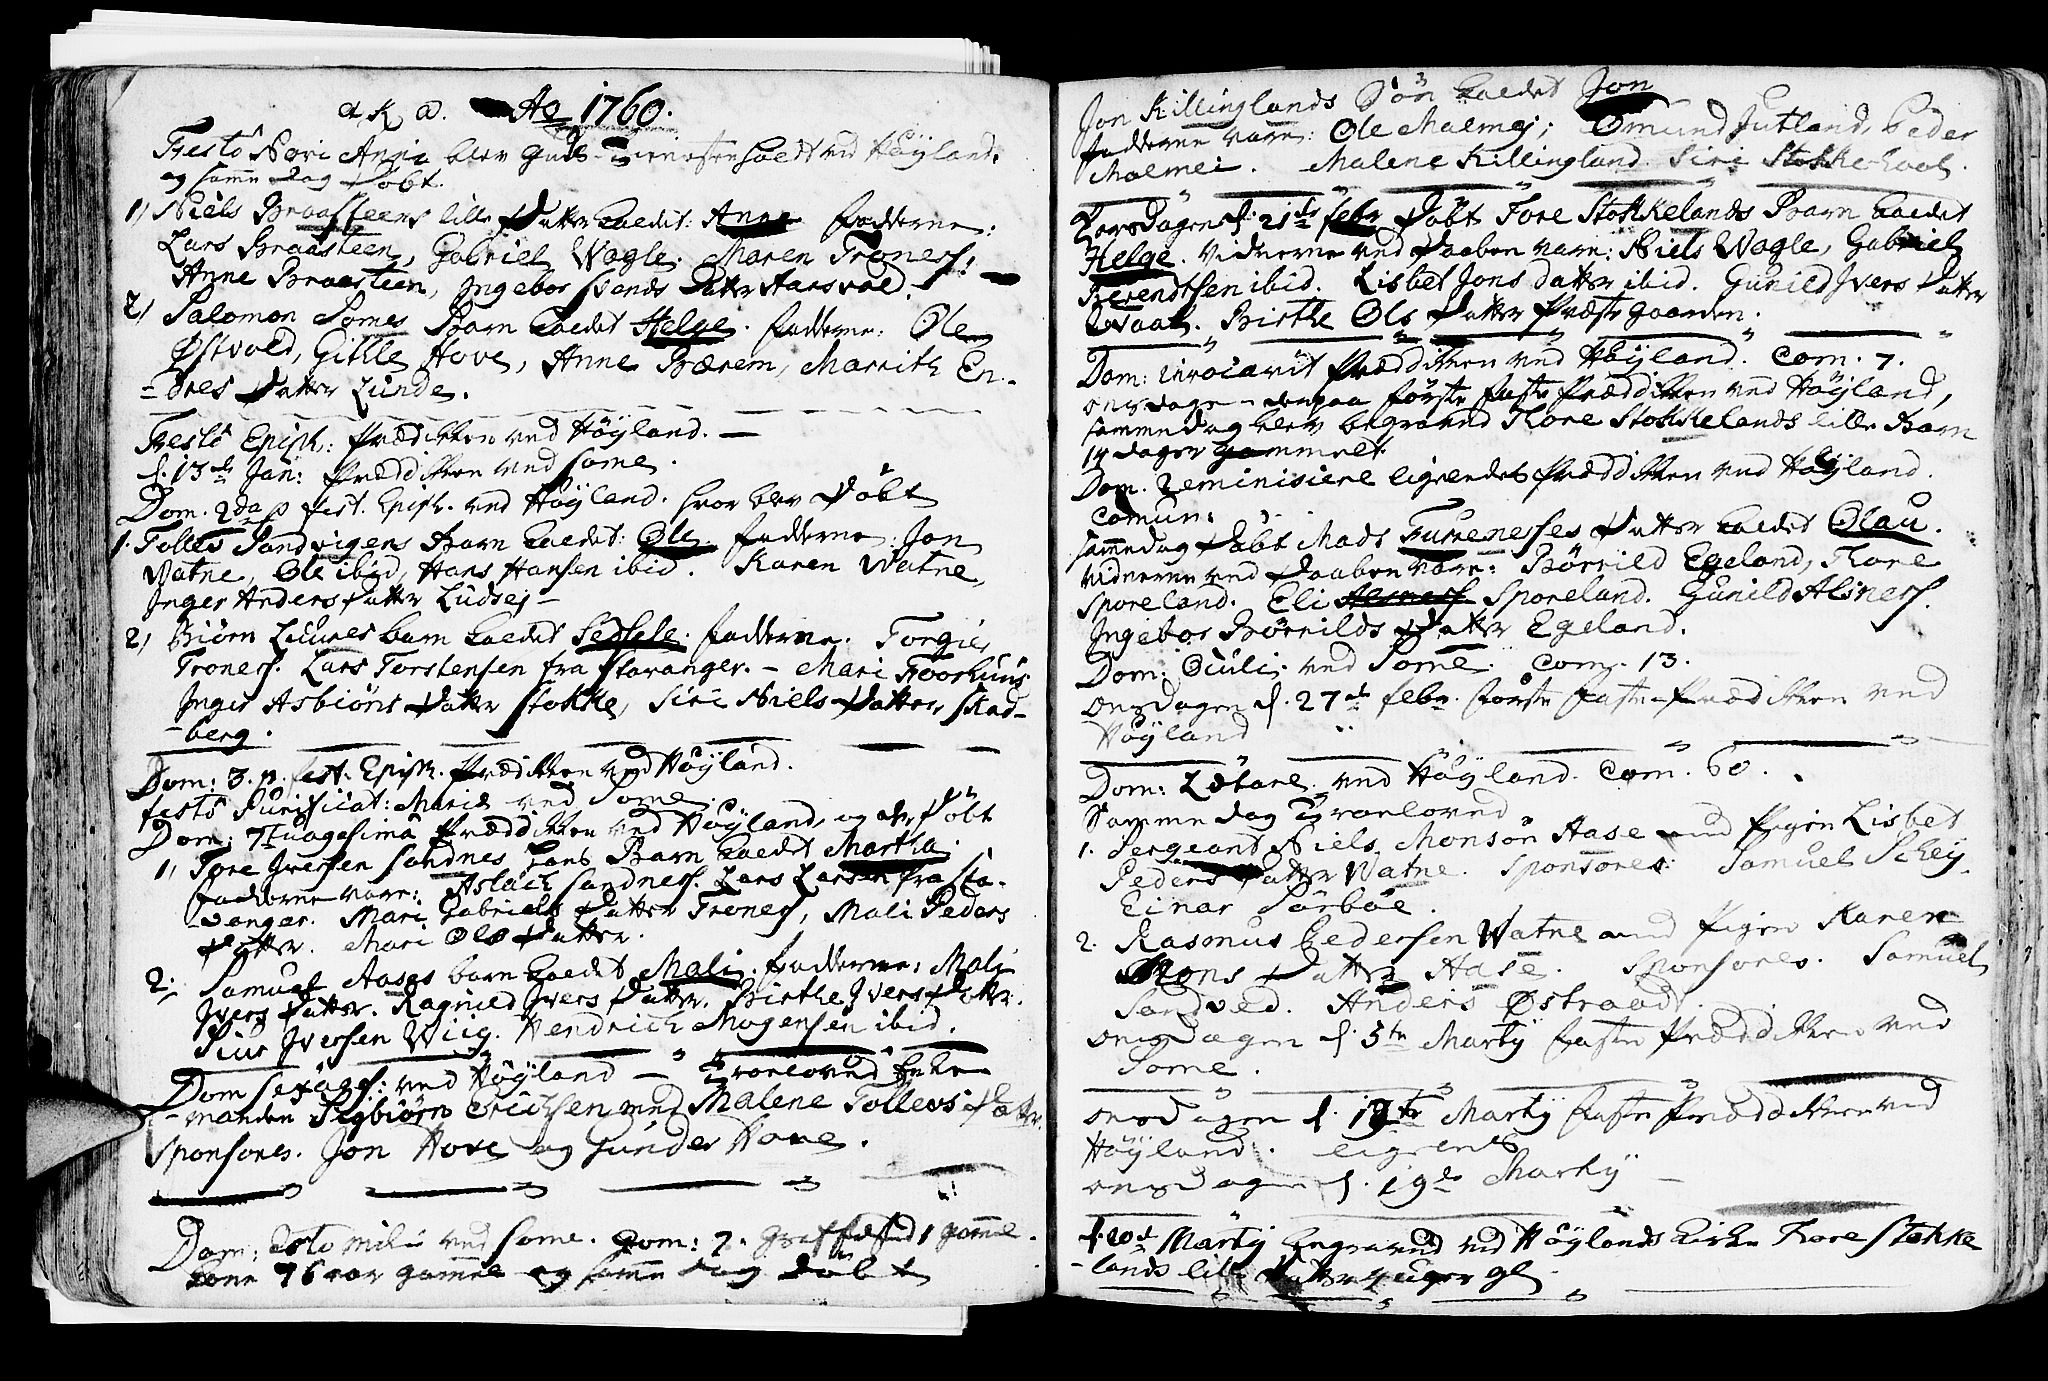 Ao 1760.
Festo Novi Anni blev Guds-tienesten holdt ved Høyland.
og samme dag døbt.
1, Niels Braasteens lille Datter kaldet: Anna fadderne:
Lars Braasteen, Gabriel Wagle. Maren Troness,
Anne Braasteen, Ingebor Svends Datter Aarsvold.
2, Salomon Somes Barn kaldet Helge. fadderne: Ole
Østvold, Gitle Hove, Anne Bærem, Marrith En-
-dres Datter Lunde.
Festo Epiph: Prædikken ved Høyland.
d. 13de Jan: Præddikken ved Some.
Dom. 2da p fest. Epiph. ved Høyland. hvor blev døbt
1. Tolles Sandvigens Barn kaldet: Ole. fadderne: Jon
Watne, Ole ibid, Hans Hansen ibid. Karen Watne,
Inger Anders Datter Ludsej
2, Biørn Luures barn kaldet Sessele. fadderne. Torgier
Troness. Lars Torstensen fra Stavanger. - Mari Foorhuus
Inger Asbiøns Datter Stokke, Siri Niels Datter Skad-
-berg.
Dom: 3. p. fest. Epiph. Prædikken ved Høyland.
festo Purificat: Mariæ ved Some
Dom: 7tuagesima Præddikken ved Høyland, og der døbt
1, Tore Iversen Sandnes hans Barn kaldet Martha.
fadderne vare: Aslach Sandness. Lars Larsen fra Sta-
-vanger. Mari Gabriels Datter Troness, Mali Peders
Datter. Mari Ols Datter.
2, Samuel Aases barn kaldet Mali. fadderne: Mali
Ivers Datter. Ragnild Ivers Datter. Birthe Ivers Datter.
Siur Iversen Wiig. Hendrich Mogensen ibid.
Dom sexages: ved Høyland — Troeloved Enke
-manden Sigbiørn Erichsen med Malene Tollevs Datter.
Sponsores. Jon Hove og Gunder Hove.
Dom: Esto mihi ved Some. Com: 7. 1 gamel
kone 76 aar gammel og samme dag døbt
Jon Killinglands Søn kaldet Jon
fadderne vare: Ole Malmej; Omund Jutland, Peder
Malmei. Malene Killingland. Siri Stokke
Torsdagen d. 21de febr døbt Tore Stokkelands Barn kaldet
Helge. Vidnerne ved Daaben vare: Niels Wagle, Gabriel
Berendtsen ibid. Lisbet Jons datter ibid. Gunild Ivers Datter
Birthe Ols Datter Præstegaarden.
Dom: Invocavit Præddikken ved Høyland. Com. 7.
onsdagen derpaa første faste Præddikken ved Høyland,
samme dag blev begraved Thore Stokkelands lille Barn
14 dager gammelt.
Dom. Reminisiere ligeledes Præddikken ved Høyland.
Comun:
samme dag døbt Mads Furenesses Datter kaldet Olau.
vidnerne ved Daaben vare: Børrild Egeland, Thore
Sporeland. Eli Sporeland. Gunild Alsness.
Ingebor Børrilds Datter Egeland.
Dom: Oculi. ved Some. Com. 13.
onsdagen d. 27de febr. første faste-Prædikken ved
Høyland
Dom: Lætare ved Høyland. Com. 60.
Samme dag Troeloved
1. Sergeant Niels Monsøn Aase med Pigen Lisbet
Peders Datter Watne. Sponsores: Samuel Schej.
Einar Sørbøe.
2. Rasmus Pedersen Watne med Pigen Karen
Mons Datter Aase. Sponsores. Samuel
Sandved. Anders Østraadt.
onsdagen d. 5te Martij faste Præddikken ved
Some.
onsdagen d. 12te Martij faste Præddikken ved
Høyland.
onsdagen d. 19de Martij
d. 20d Martij begraved ved Høylands kirke Thore Stokke
-lands lille Datter 4 uger gl